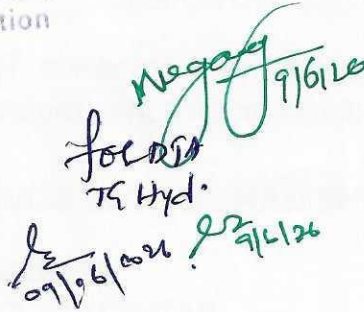 tion
9/6/26
for DTA
TG Hyd.
09/06/2026
9/6/26